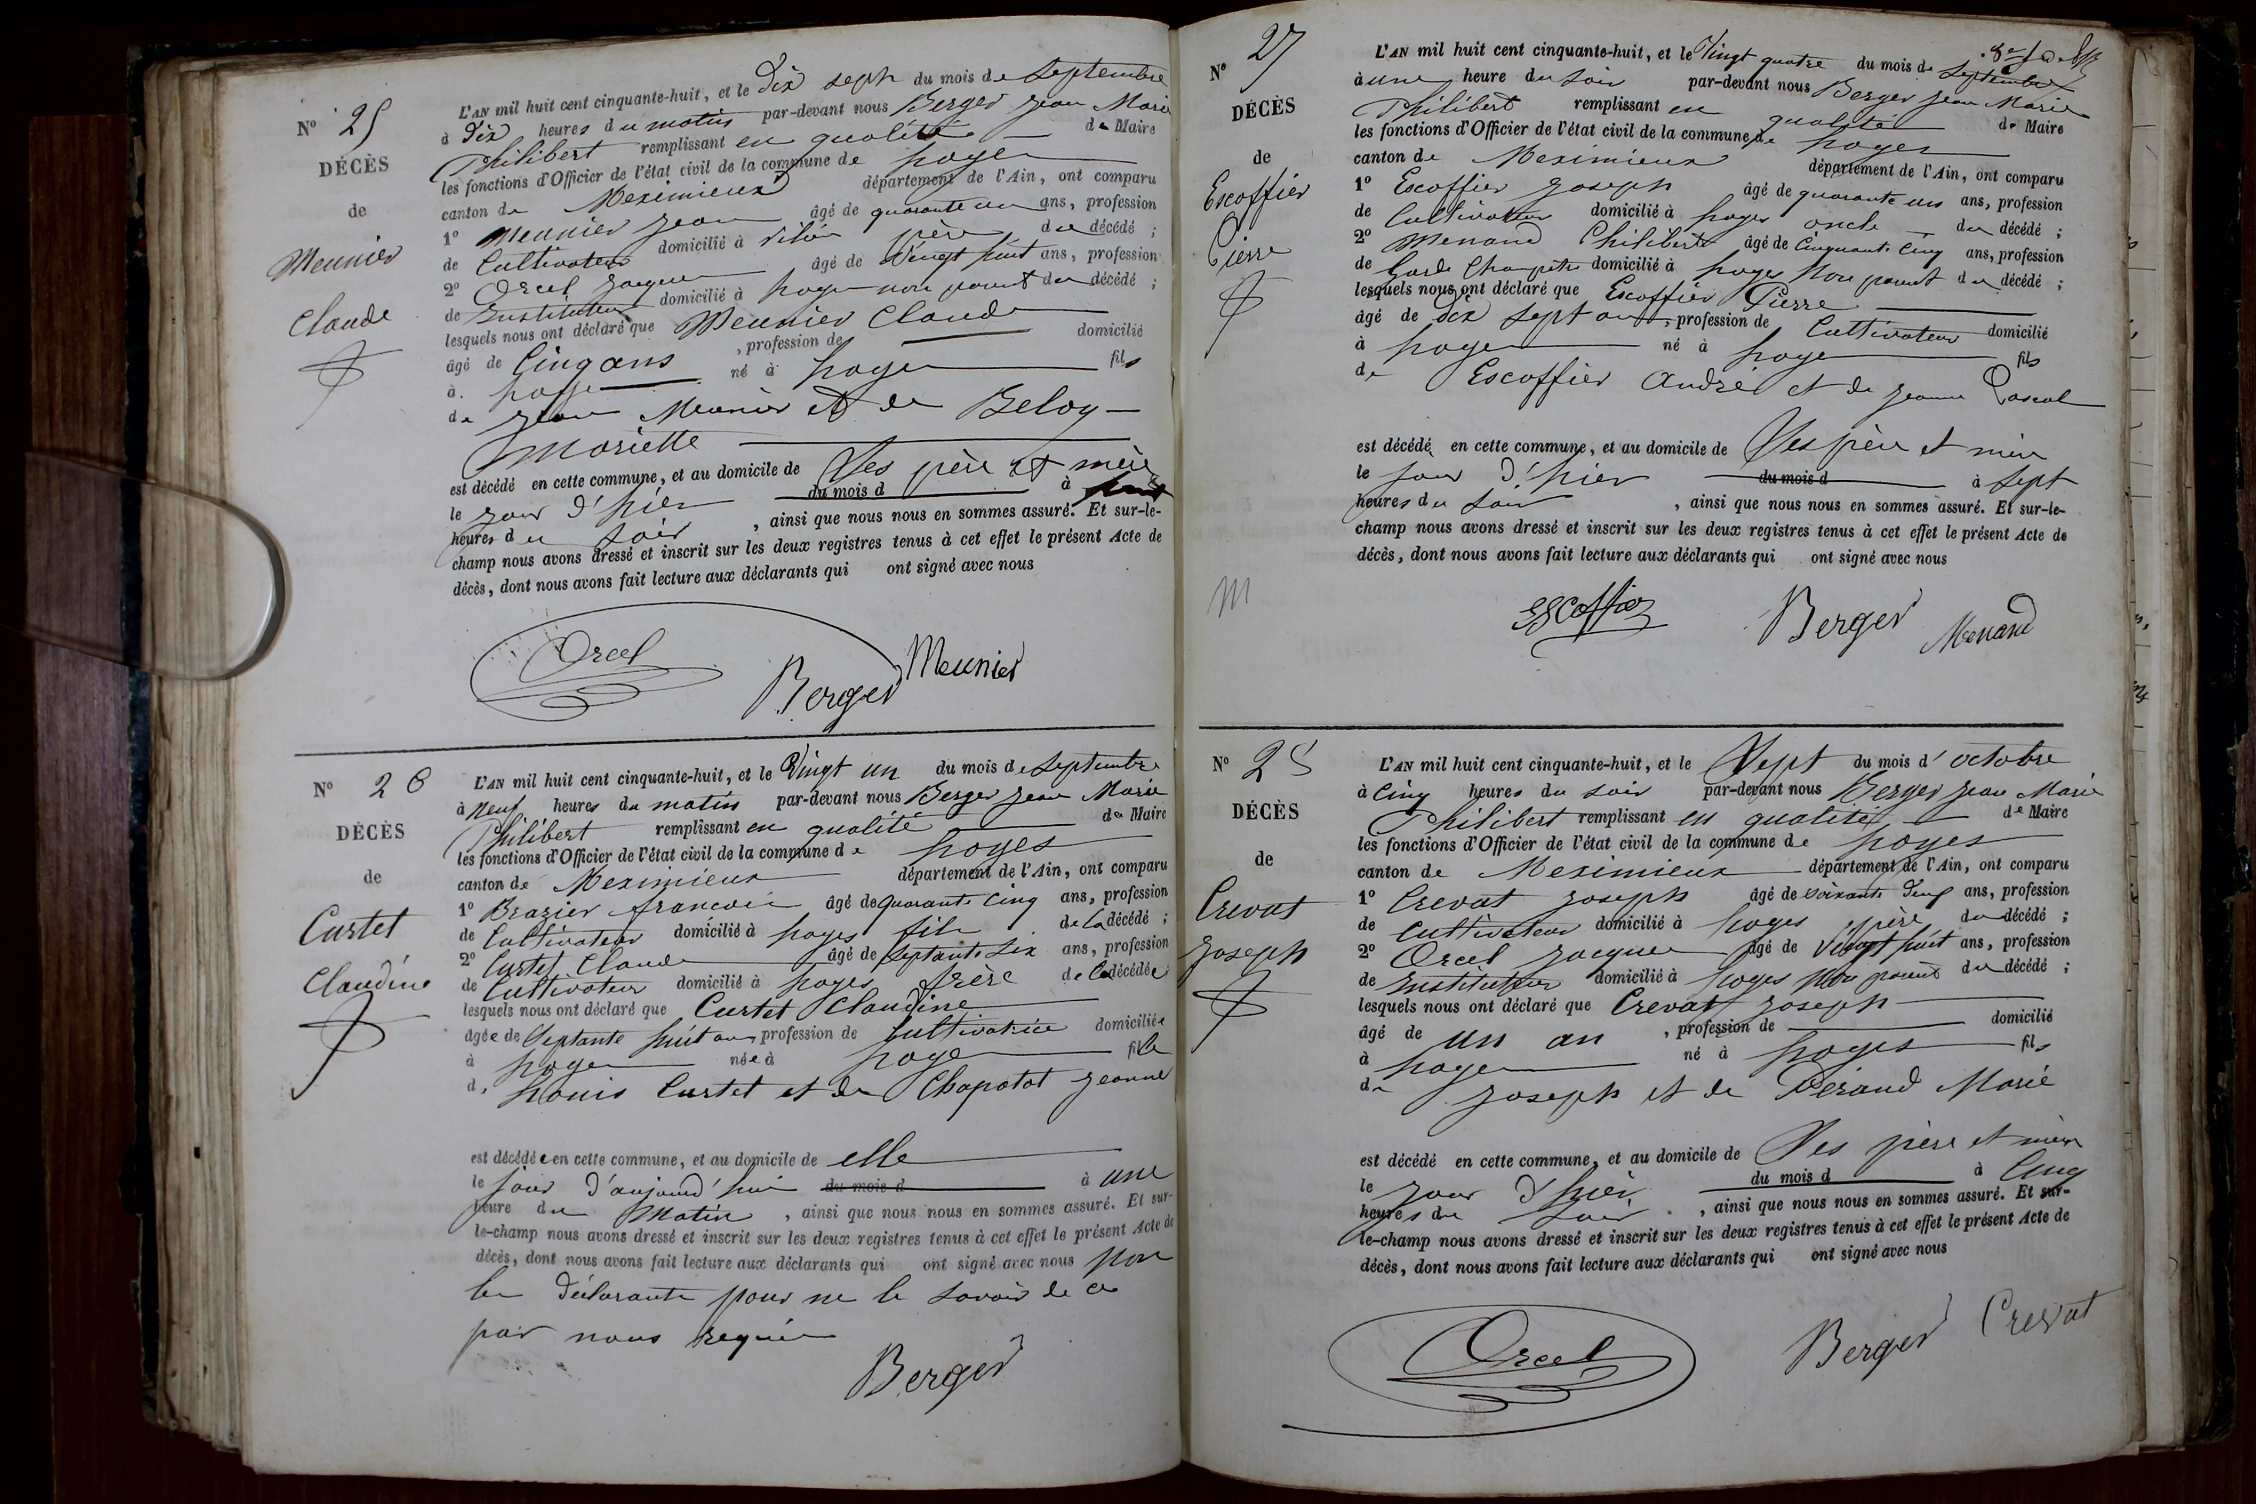 N° 25
DÉCÈS
de
Meunier
Claude
L'AN mil huit cent cinquante-huit, et le Dix sept du mois de Septembre
à Dix heures du matin par-devant nous Berger Jean Marie
Philibert remplissant en qualité de Maire
les fonctions d'Officier de l'état civil de la commune de Loyes
canton de Meximieux département de l'Ain, ont comparu
1° Meunier Jean âgé de quarante un ans, profession
de Cultivateur domicilié à père du décédé ;
2° Orcel Jacques âgé de Vingt huit ans, profession
de Instituteur domicilié à Loyes non parent du décédé ;
lesquels nous ont déclaré que Meunier Claude
âgé de Cinq ans , profession de domicilié
à Loyes né à Loyes fils
de Jean Meunier et de Beloy
Mariette
est décédé en cette commune, et au domicile de Ses père et mère
le jour d'hier du mois d à
heures du soir , ainsi que nous nous en sommes assuré. Et sur-le-
champ nous avons dressé et inscrit sur les deux registres tenus à cet effet le présent Acte de
décès, dont nous avons fait lecture aux déclarants qui ont signé avec nous
Orcel Berger Meunier
N° 26
DÉCÈS
de
Curtet
Claudine
L'AN mil huit cent cinquante-huit, et le Vingt un du mois de Septembre
à Neuf heures du matin par-devant nous Berger Jean Marie
Philibert remplissant en qualité de Maire
les fonctions d'Officier de l'état civil de la commune de Loyes
canton de Meximieux département de l'Ain, ont comparu
1° Brazier francois âgé de quarante Cinq ans, profession
de Cultivateur domicilié à Loyes fils de la décédé ;
2° Curtet Claude âgé de Septante Six ans, profession
de Cultivateur domicilié à Loyes frère de la décédée
lesquels nous ont déclaré que Curtet Claudine
âgée de Septante huit ans profession de Cultivatrice domiciliée
à Loyes née à Loyes fille
de Louis Curtet et de Chapotot Jeanne
est décédée en cette commune, et au domicile de elle
le jour d'aujourd'hui du mois d à une
heure du Matin , ainsi que nous nous en sommes assuré. Et sur-
le-champ nous avons dressé et inscrit sur les deux registres tenus à cet effet le présent Acte de
décès, dont nous avons fait lecture aux déclarants qui ont signé avec nous non
les déclarants pour ne le savoir de ce
par nous requis
Berger
N° 27
DÉCÈS
de
Escoffier
Pierre
L'AN mil huit cent cinquante-huit, et le Vingt quatre du mois de Septembre
à une heure du soir par-devant nous Berger Jean Marie
Philibert remplissant en qualité de Maire
les fonctions d'Officier de l'état civil de la commune de Loyes
canton de Meximieux département de l'Ain, ont comparu
1° Escoffier Joseph âgé de quarante un ans, profession
de Cultivateur domicilié à Loyes oncle du décédé ;
2° Menand Philibert âgé de Cinquante Cinq ans, profession
de Garde Champetre domicilié à Loyes Non parent du décédé ;
lesquels nous ont déclaré que Escoffier Pierre
âgé de Dix sept ans, profession de Cultivateur domicilié
à Loyes né à Loyes fils
de Escoffier André et de Jeanne Pascal
est décédé en cette commune, et au domicile de Ses père et mère
le jour d'hier du mois d à Sept
heures du soir , ainsi que nous nous en sommes assuré. Et sur-le-
champ nous avons dressé et inscrit sur les deux registres tenus à cet effet le présent Acte de
décès, dont nous avons fait lecture aux déclarants qui ont signé avec nous
M
Escoffier Berger Menand
N° 28
DÉCÈS
de
Crevat
Joseph
L'AN mil huit cent cinquante-huit, et le Sept du mois d'octobre
à Cinq heures du soir par-devant nous Berger Jean Marie
Philibert remplissant en qualité de Maire
les fonctions d'Officier de l'état civil de la commune de Loyes
canton de Meximieux département de l'Ain, ont comparu
1° Crevat Joseph âgé de soixante ans, profession
de Cultivateur domicilié à Loyes père du décédé ;
2° Orcel Jacques âgé de Vingt huit ans, profession
de Instituteur domicilié à Loyes Non parent du décédé ;
lesquels nous ont déclaré que Crevat Joseph
âgé de un an , profession de domicilié
à Loyes né à Loyes fils
de Joseph et de Péraud Marie
est décédé en cette commune, et au domicile de Ses père et mère
le jour d'hier du mois d à Cinq
heures du soir , ainsi que nous nous en sommes assuré. Et sur-
le-champ nous avons dressé et inscrit sur les deux registres tenus à cet effet le présent Acte de
décès, dont nous avons fait lecture aux déclarants qui ont signé avec nous
Orcel Berger Crevat